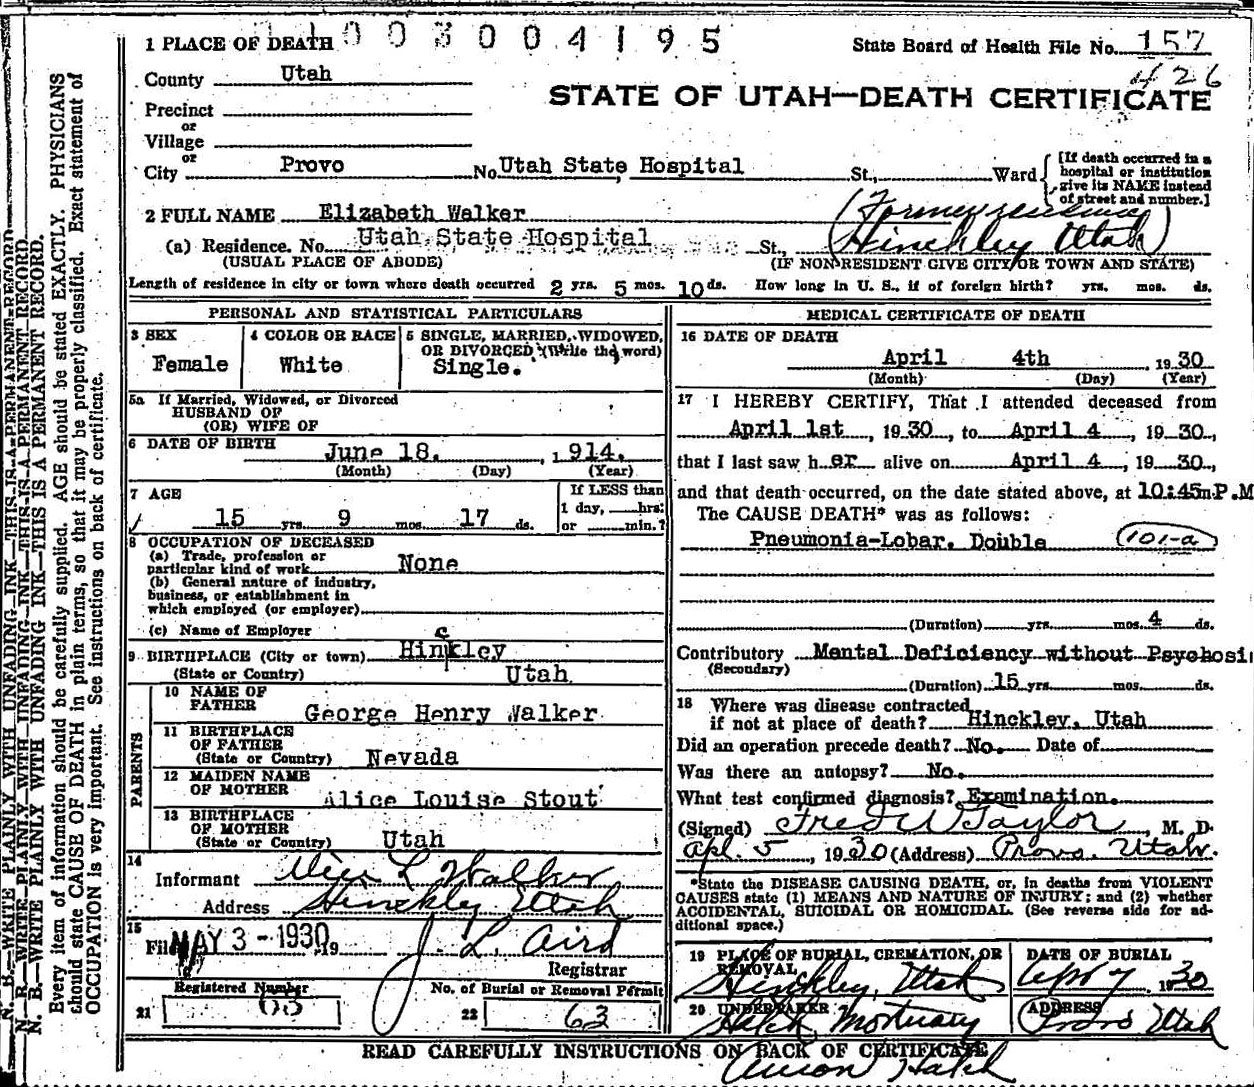 1003004195
1 PLACE OF DEATH
State Board of Health File No. 157
426
County Utah
STATE OF UTAH—DEATH CERTIFICATE
Precinct
or
Village
or
City Provo No. Utah State Hospital St., Ward
[If death occurred in a
hospital or institution
give its NAME instead
of street and number.]
2 FULL NAME Elizabeth Walker
(Former residence
(a) Residence. No. Utah State Hospital St., Hinckley Utah)
(USUAL PLACE OF ABODE) (IF NON-RESIDENT GIVE CITY OR TOWN AND STATE)
Length of residence in city or town where death occurred 2 yrs. 5 mos. 10 ds. How long in U. S., if of foreign birth? yrs. mos. ds.
PERSONAL AND STATISTICAL PARTICULARS
3 SEX
Female
4 COLOR OR RACE
White
5 SINGLE, MARRIED, WIDOWED,
OR DIVORCED (Write the word)
Single.
5a If Married, Widowed, or Divorced
HUSBAND OF
(OR) WIFE OF
6 DATE OF BIRTH June 18. , 1914.
(Month) (Day) (Year)
7 AGE
15 yrs. 9 mos. 17 ds.
If LESS than
1 day, hrs.
or min.?
8 OCCUPATION OF DECEASED
(a) Trade, profession or
particular kind of work None
(b) General nature of industry,
business, or establishment in
which employed (or employer)
(c) Name of Employer
9 BIRTHPLACE (City or town) Hinckley
(State or Country) Utah
PARENTS
10 NAME OF
FATHER George Henry Walker
11 BIRTHPLACE
OF FATHER
(State or Country) Nevada
12 MAIDEN NAME
OF MOTHER Alice Louise Stout
13 BIRTHPLACE
OF MOTHER
(State or Country) Utah
14
Informant Alice L Walker
Address Hinckley Utah
15
Filed MAY 3 - 1930 19 J. L. Aird
Registrar
Registered Number
21 63
No. of Burial or Removal Permit
22 63
MEDICAL CERTIFICATE OF DEATH
16 DATE OF DEATH
April 4th 1930
(Month) (Day) (Year)
17 I HEREBY CERTIFY, That I attended deceased from
April 1st, 1930, to April 4, 1930,
that I last saw her alive on April 4, 1930,
and that death occurred, on the date stated above, at 10:45m P.M
The CAUSE DEATH* was as follows:
Pneumonia-Lobar. Double 101-a
(Duration) yrs. mos. 4 ds.
Contributory Mental Deficiency without Psychosi
(Secondary)
(Duration) 15 yrs. mos. ds.
18 Where was disease contracted
if not at place of death? Hinckley, Utah
Did an operation precede death? No. Date of
Was there an autopsy? No.
What test confirmed diagnosis? Examination.
(Signed) Fred W Taylor, M. D.
Apl. 5, 1930 (Address) Provo. Utah.
*State the DISEASE CAUSING DEATH, or, in deaths from VIOLENT
CAUSES state (1) MEANS AND NATURE OF INJURY; and (2) whether
ACCIDENTAL, SUICIDAL OR HOMICIDAL. (See reverse side for ad-
ditional space.)
19 PLACE OF BURIAL, CREMATION, OR
REMOVAL
Hinckley, Utah
DATE OF BURIAL
Apr 7 1930
20 UNDERTAKER
Hatch Mortuary
ADDRESS
Provo Utah
READ CAREFULLY INSTRUCTIONS ON BACK OF CERTIFICATE
Hatch
N. B.—WRITE PLAINLY WITH UNFADING INK—THIS IS A PERMANENT RECORD.
Every item of information should be carefully supplied. AGE should be stated EXACTLY. PHYSICIANS
should state CAUSE OF DEATH in plain terms, so that it may be properly classified. Exact statement of
OCCUPATION is very important. See instructions on back of certificate.